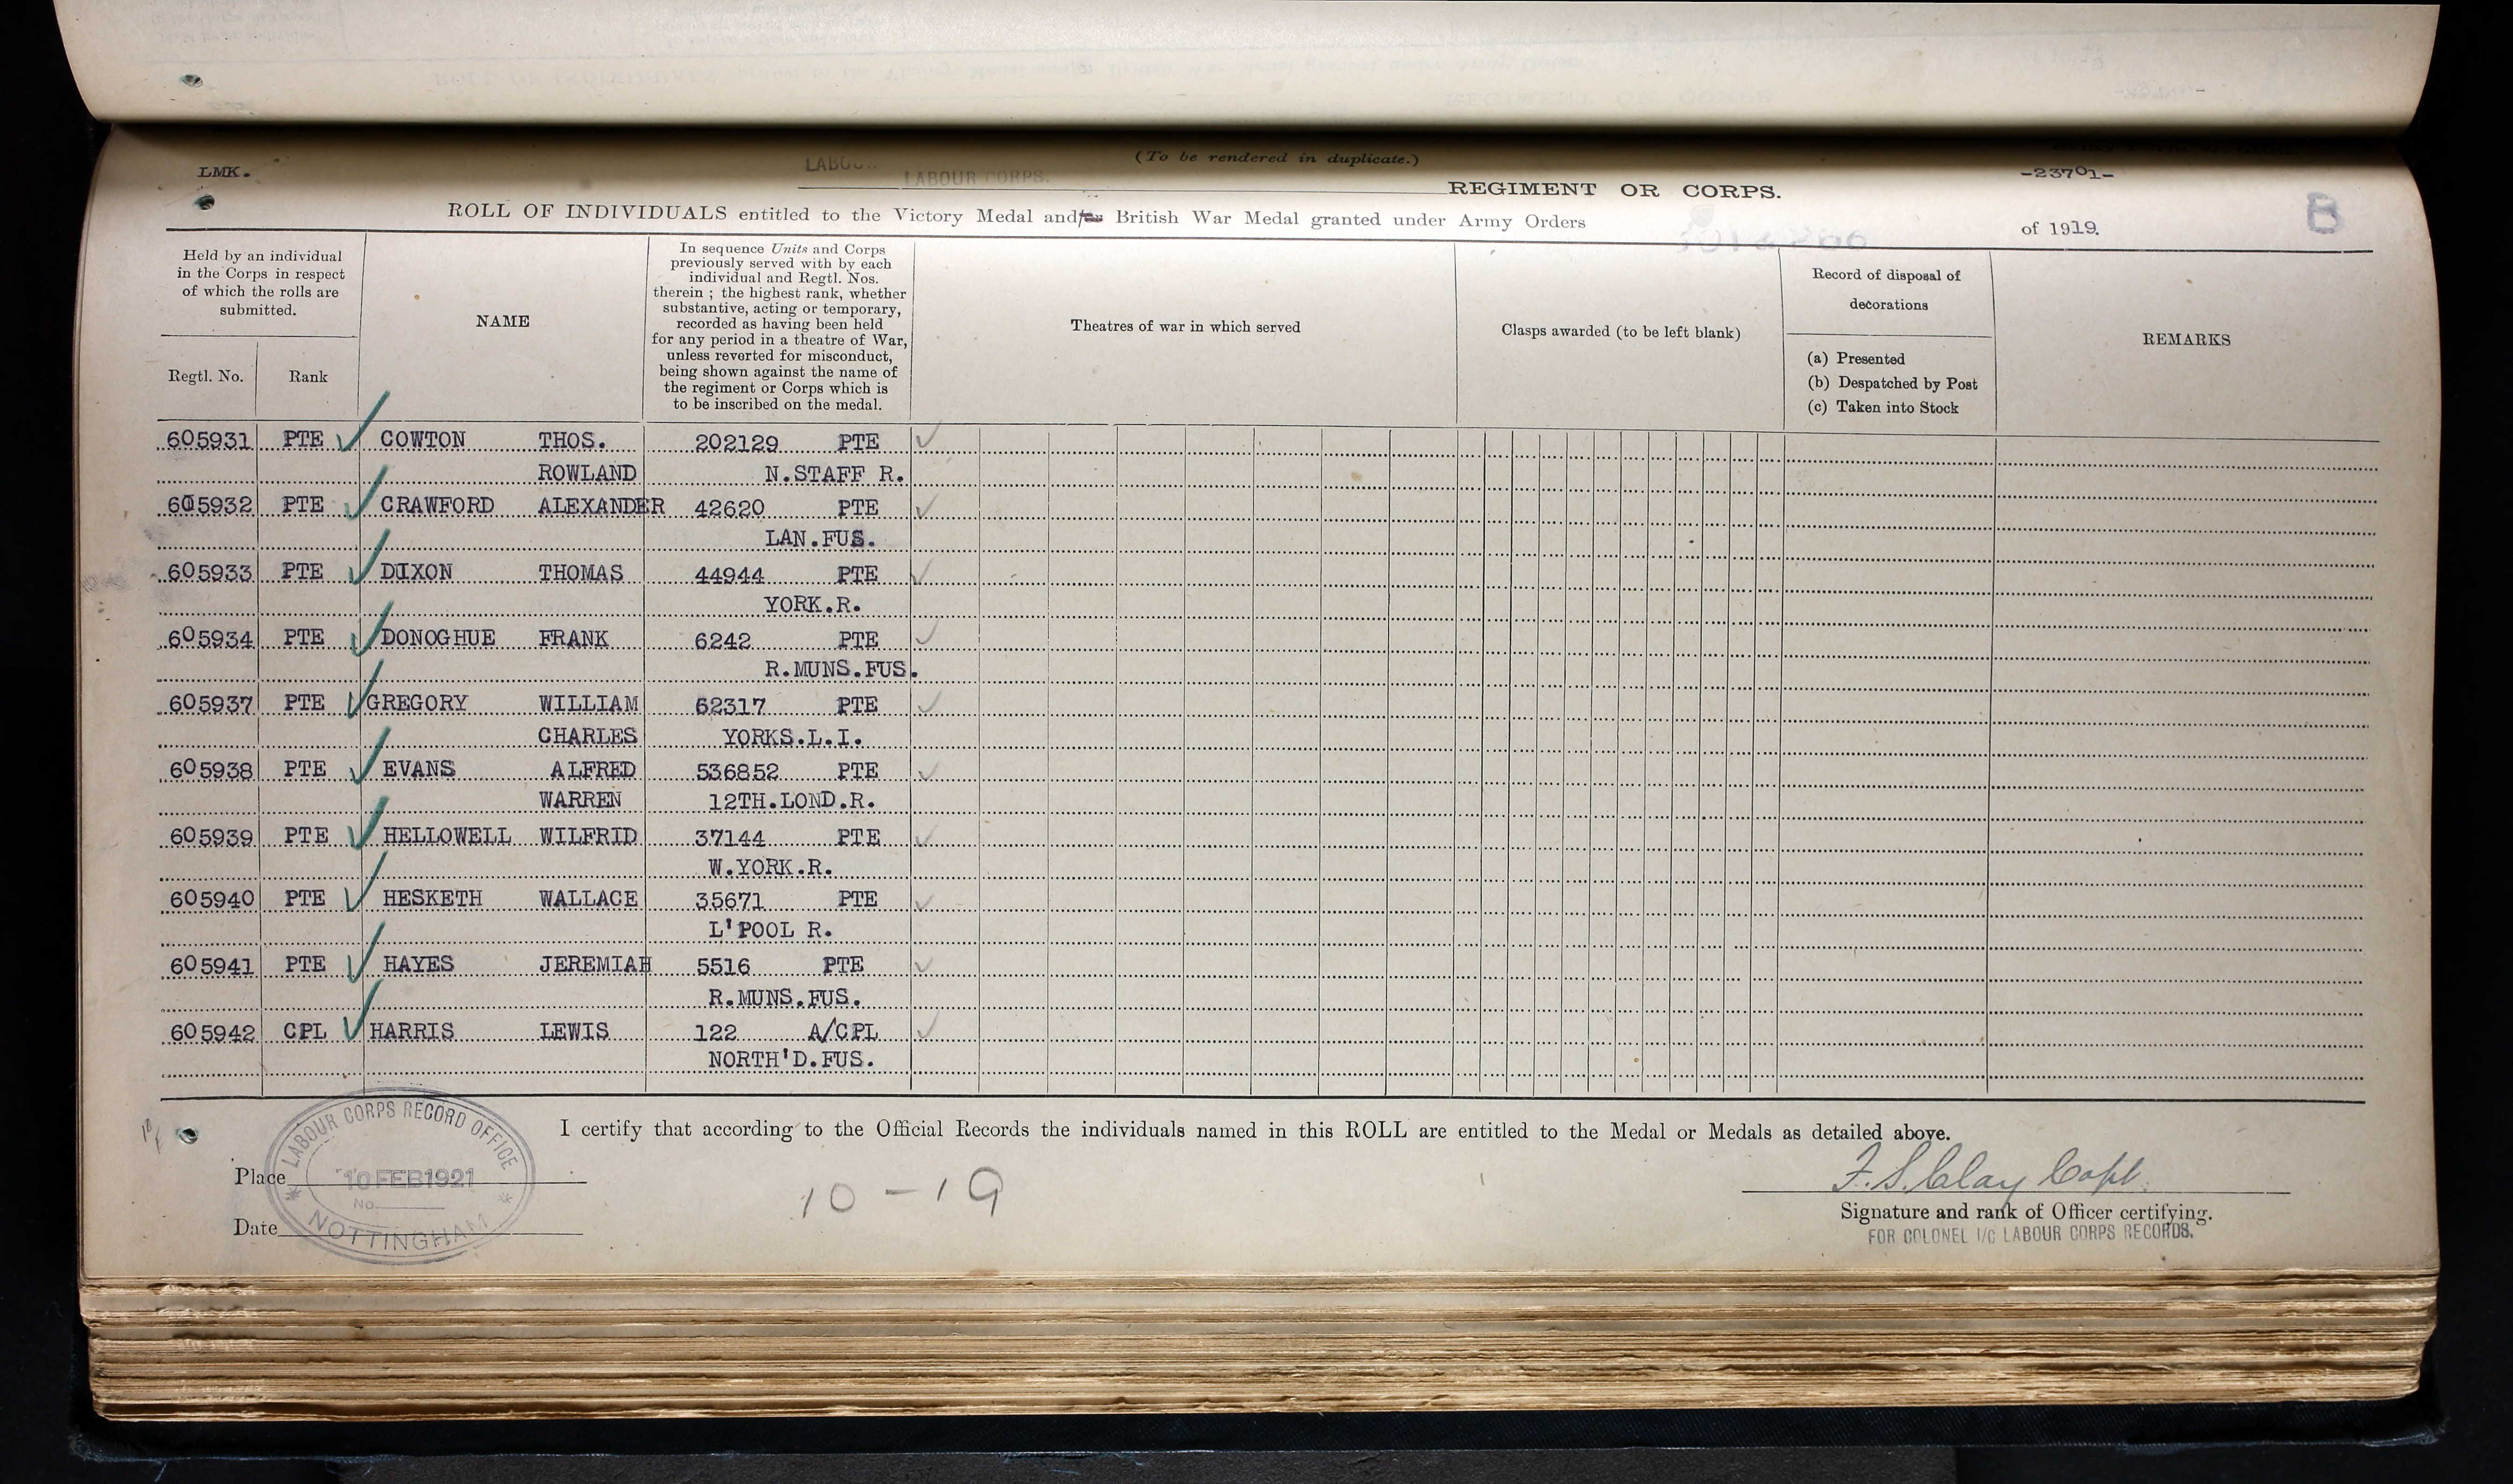 (To be rendered in duplicate.)
LMK.
LABOUR CORPS.
-23701-
REGIMENT OR CORPS.
B
ROLL OF INDIVIDUALS entitled to the Victory Medal and/or British War Medal granted under Army Orders
of 1919.
Held by an individual in the Corps in respect of which the rolls are submitted.
Regtl. No.
Rank
NAME
In sequence Units and Corps
previously served with by each
individual and Regtl. Nos.
therein ; the highest rank, whether
substantive, acting or temporary,
recorded as having been held
for any period in a theatre of War,
unless reverted for misconduct,
being shown against the name of
the regiment or Corps which is
to be inscribed on the medal.
Theatres of war in which served
Clasps awarded (to be left blank)
Record of disposal of
decorations
(a) Presented
(b) Despatched by Post
(c) Taken into Stock
REMARKS
605931 PTE COWTON THOS. 202129 PTE
ROWLAND N.STAFF R.
605932 PTE CRAWFORD ALEXANDER 42620 PTE
LAN.FUS.
605933 PTE DIXON THOMAS 44944 PTE
YORK.R.
605934 PTE DONOGHUE FRANK 6242 PTE
R.MUNS.FUS.
605937 PTE GREGORY WILLIAM 62317 PTE
CHARLES YORKS.L.I.
605938 PTE EVANS ALFRED 536852 PTE
WARREN 12TH.LOND.R.
605939 PTE HELLOWELL WILFRID 37144 PTE
W.YORK.R.
605940 PTE HESKETH WALLACE 35671 PTE
L'POOL R.
605941 PTE HAYES JEREMIAH 5516 PTE
R.MUNS.FUS.
605942 CPL HARRIS LEWIS 122 A/CPL
NORTH'D.FUS.
I certify that according to the Official Records the individuals named in this ROLL are entitled to the Medal or Medals as detailed above.
LABOUR CORPS RECORD OFFICE
Place
10 FEB 1921
No.
Date
NOTTINGHAM
10-19
F.S. Clay Capt.
Signature and rank of Officer certifying.
FOR COLONEL I/C LABOUR CORPS RECORDS.